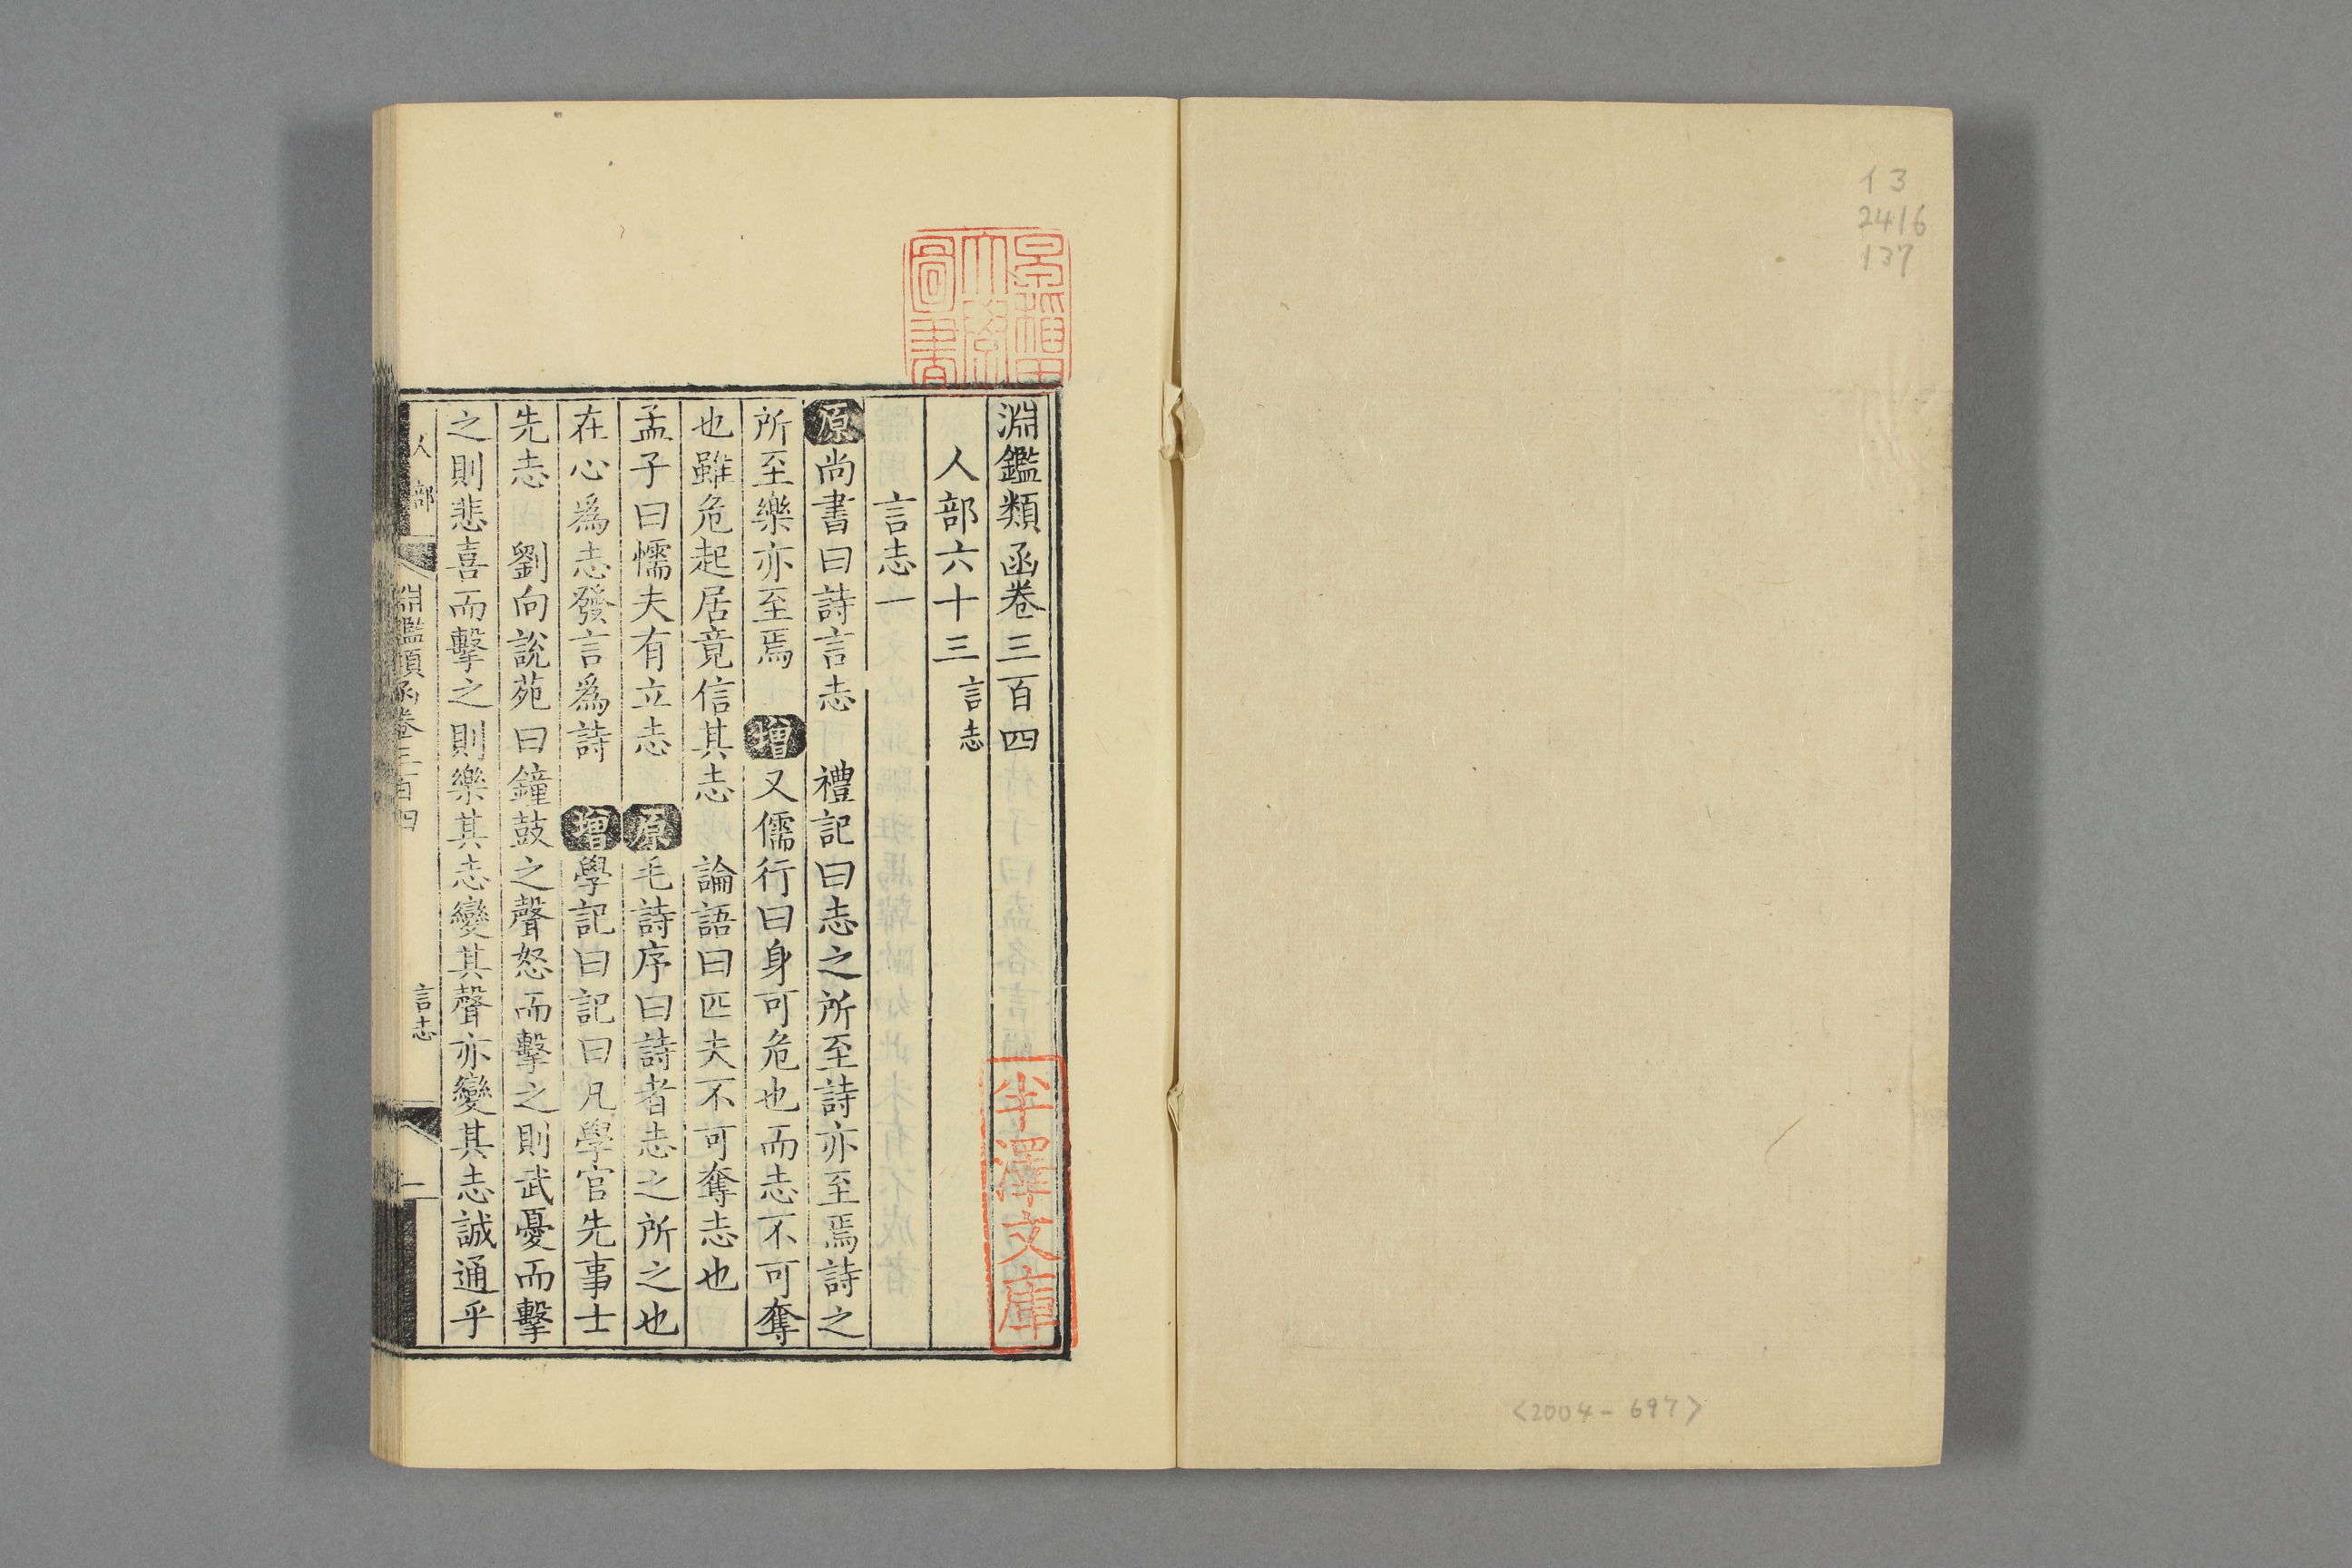 イ3
2416
137
<2004-697>
早稲田
大學
圖書
淵鑑類函卷三百四
人部六十三 言志
言志一
原尚書曰詩言志 禮記曰志之所至詩亦至焉詩之
所至樂亦至焉 增又儒行曰身可危也而志不可奪
也雖危起居竟信其志 論語曰匹夫不可奪志也
孟子曰懦夫有立志 原毛詩序曰詩者志之所之也
在心爲志發言爲詩 增學記曰記曰凡學官先事士
先志 劉向說苑曰鐘鼓之聲怒而擊之則武憂而擊
之則悲喜而擊之則樂其志變其聲亦變其志誠通乎
人部 淵鑑類函卷三百四 言志 一
半澤文庫